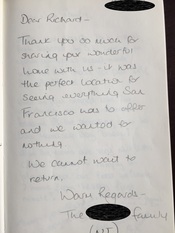 Dear Richard -
Thank you so much for
sharing your wonderful
home with us - it was
the perfect location for
seeing everything San
Francisco has to offer
and we wanted for
nothing
We cannot wait to
return.
Warm Regards -
The family
(NJ)